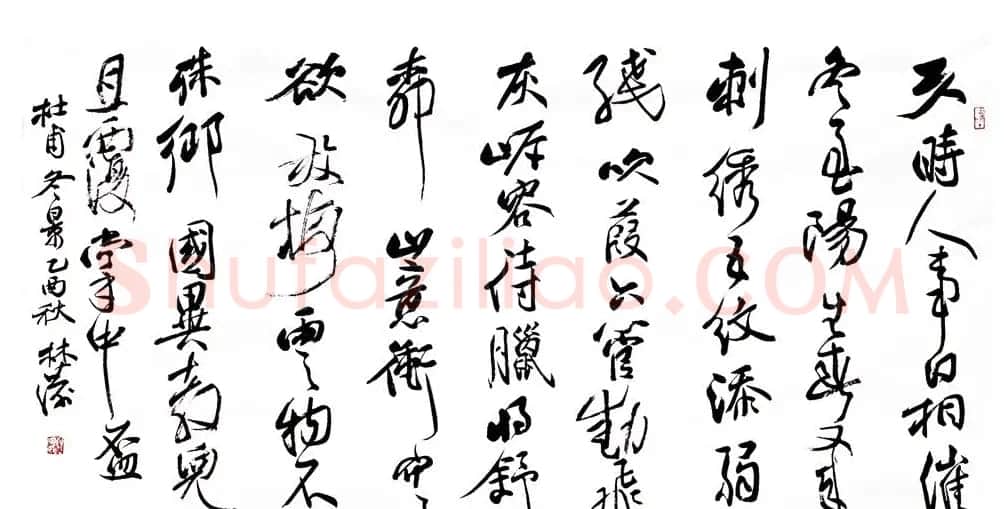 天時人事日相催
冬至陽生春又来
刺绣五纹添弱
綫吹葭六管動飛
灰岸容待臘将舒
柳山意衝
欲放梅雲物不
殊鄉國異教兒
且覆掌中盃
杜甫冬景乙酉秋
Shufaziliao.COM